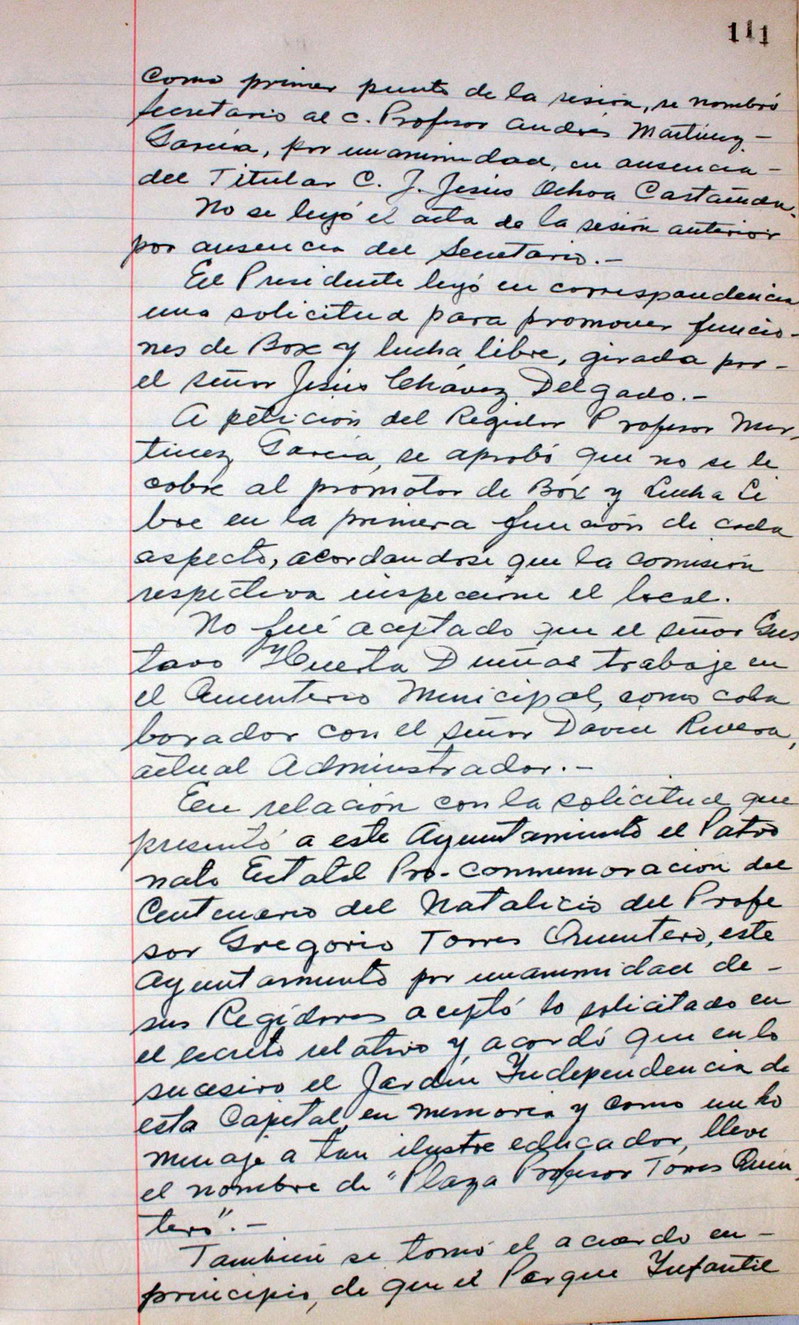 111
Como primer punto de la sesión, se nombró
Secretario al C. Profesor Andrés Martínez -
García, por unanimidad, en ausencia -
del Titular C. J. Jesús Ochoa Castañeda.
No se leyó el acta de la sesión anterior
por ausencia del Secretario.-
El Presidente leyó en correspondencia
una solicitud para promover funcio-
nes de Box y lucha libre, girada por -
el señor Jesús Chávez Delgado.-
A petición del Regidor Profesor Mar-
tínez García, se aprobó que no se le
cobre al promotor de Box y Lucha Li
bre en la primera función de cada
aspecto, acordandose que la comisión
respectiva inspeccione el local.
No fué aceptado que el señor Gus
tavo Huerta Dueñas trabaje en
el Cementerio Municipal, como cola
borador con el señor David Rivera,
actual Administrador.-
En relación con la solicitud que
presentó a este Ayuntamiento el Patro
nato Estatal Pro-conmemoración del
Centenario del Natalicio del Profe
sor Gregorio Torres Quintero, este
Ayuntamiento por unanimidad de -
sus Regidores aceptó lo solicitado en
el escrito relativo y acordó que en lo
sucesivo el Jardín Independencia de
esta Capital, en memoria y como un ho
menaje a tan ilustre educador, lleve
el nombre de "Plaza Profesor Torres Quin-
tero".-
También se tomó el acuerdo en -
principio, de que el Parque Infantil